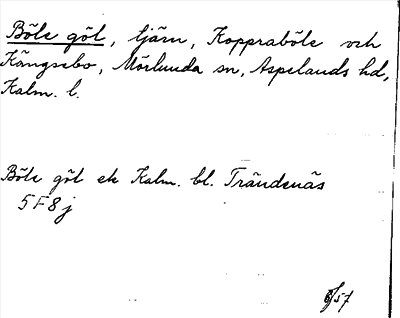 Böle göl, tjärn, Koppraböle och
Kängsebo, Mörlunda sn, Aspelands hd,
Kalm. l.
Böle göl ek Kalm. bl. Trändenäs
5F8j
/57